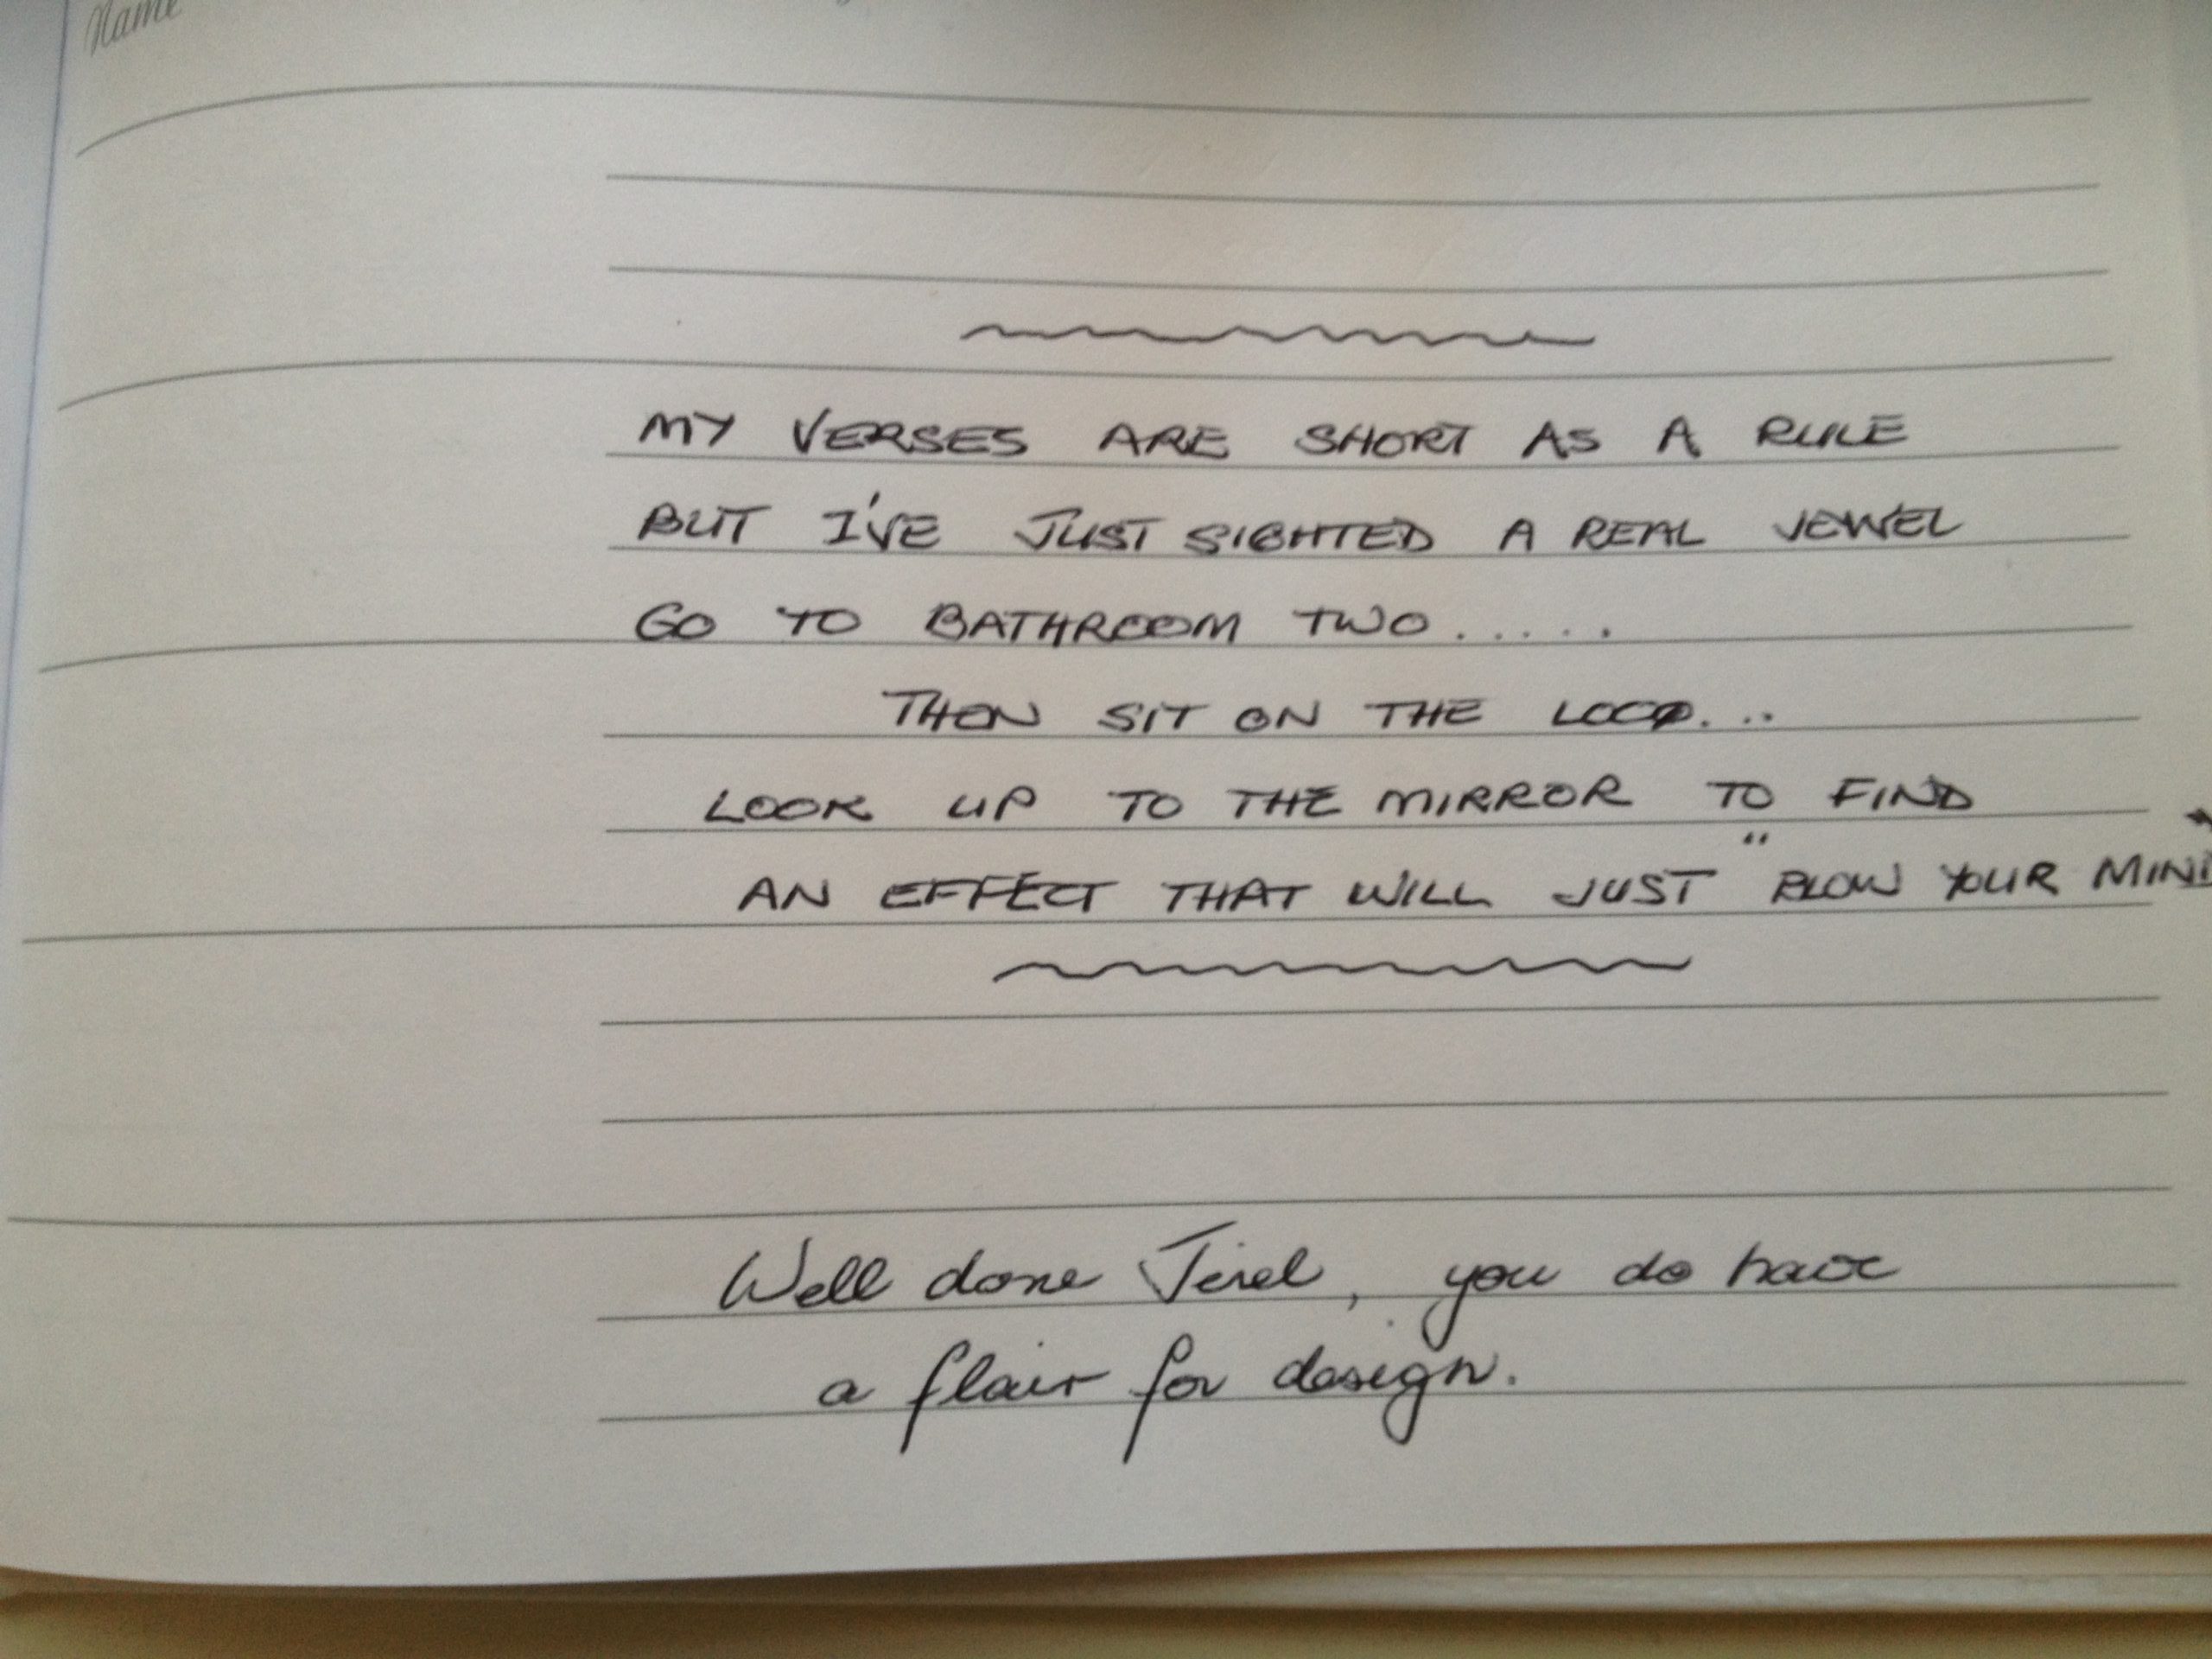 Name
MY VERSES ARE SHORT AS A RULE
BUT I'VE JUST SIGHTED A REAL JEWEL
GO TO BATHROOM TWO.....
THEN SIT ON THE LOOO...
LOOK UP TO THE MIRROR TO FIND
AN EFFECT THAT WILL JUST "BLOW YOUR MIND
Well done, you do have
a flair for design.